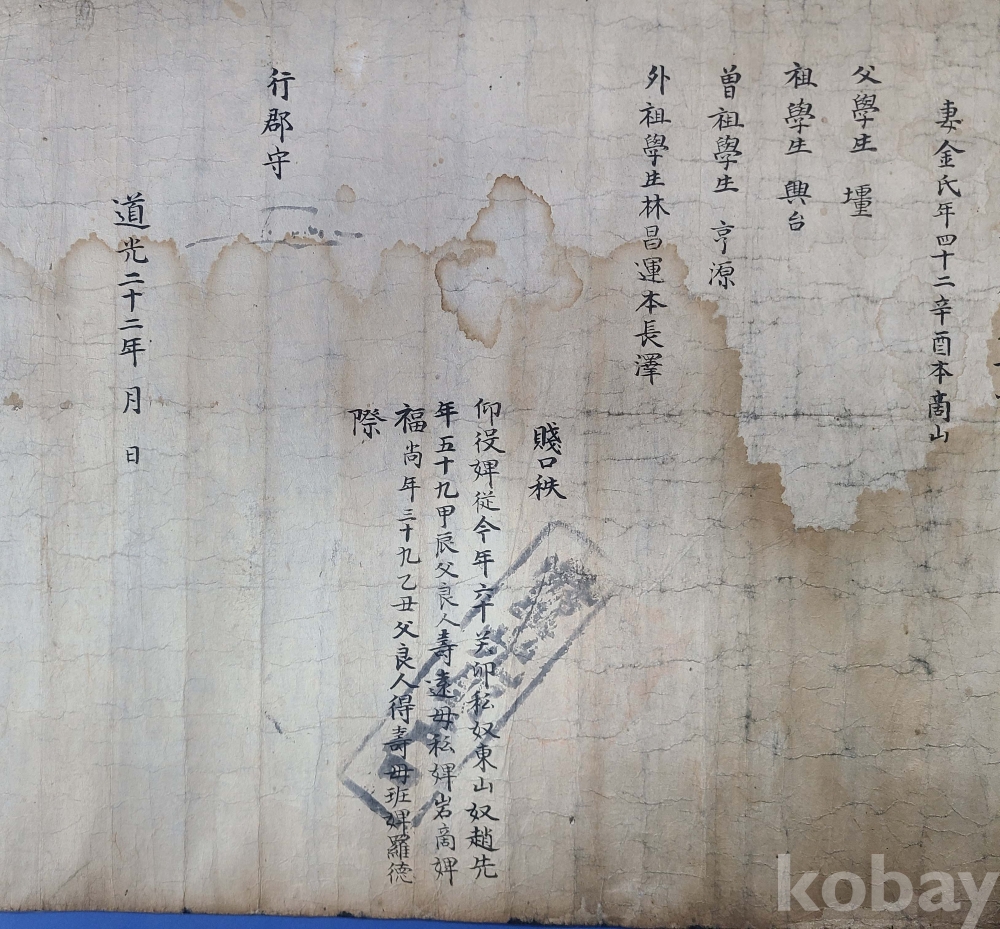 妻金氏年四十二辛酉本商山
父學生 㙻
祖學生 興台
曾祖學生 亨源
外祖學生林昌運本長澤
賤口秩
仰役婢従今年六十 卯私奴東山奴趙先
年五十九甲辰父良人壽遠母私婢岩啇婢
福尚年三十九乙丑父良人得壽母班婢羅德
際
行郡守
道光二十二年 月 日
kobay